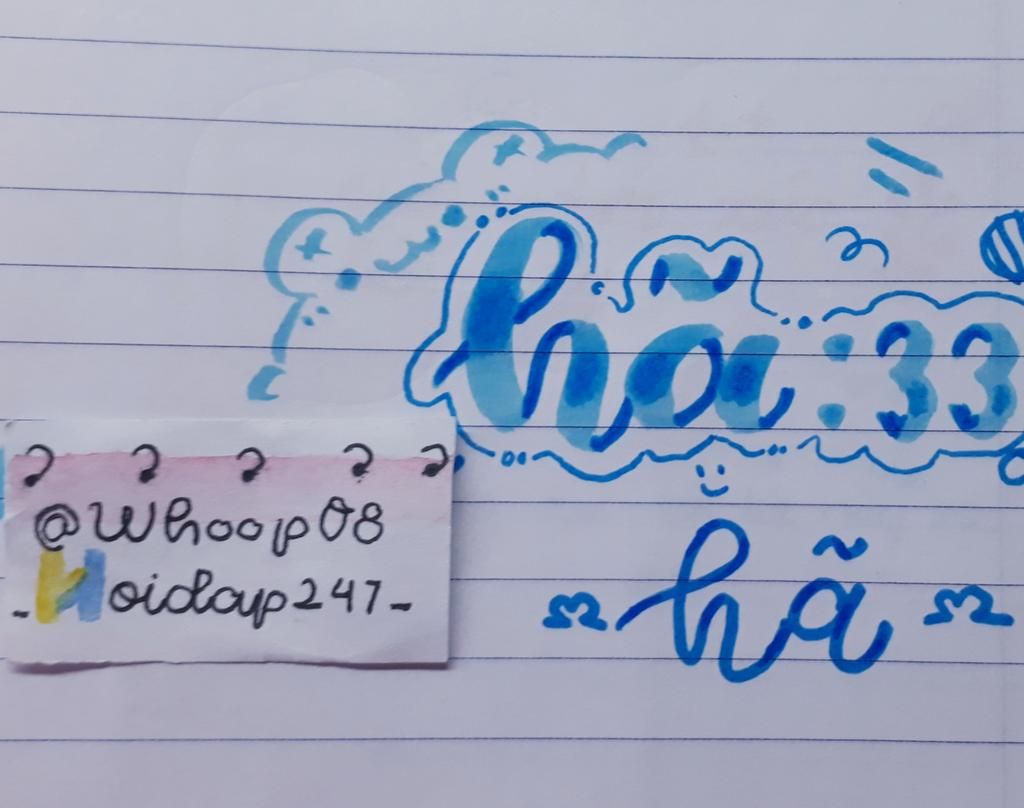 hã :33
@Whoop08
_Hoidap247_
hã